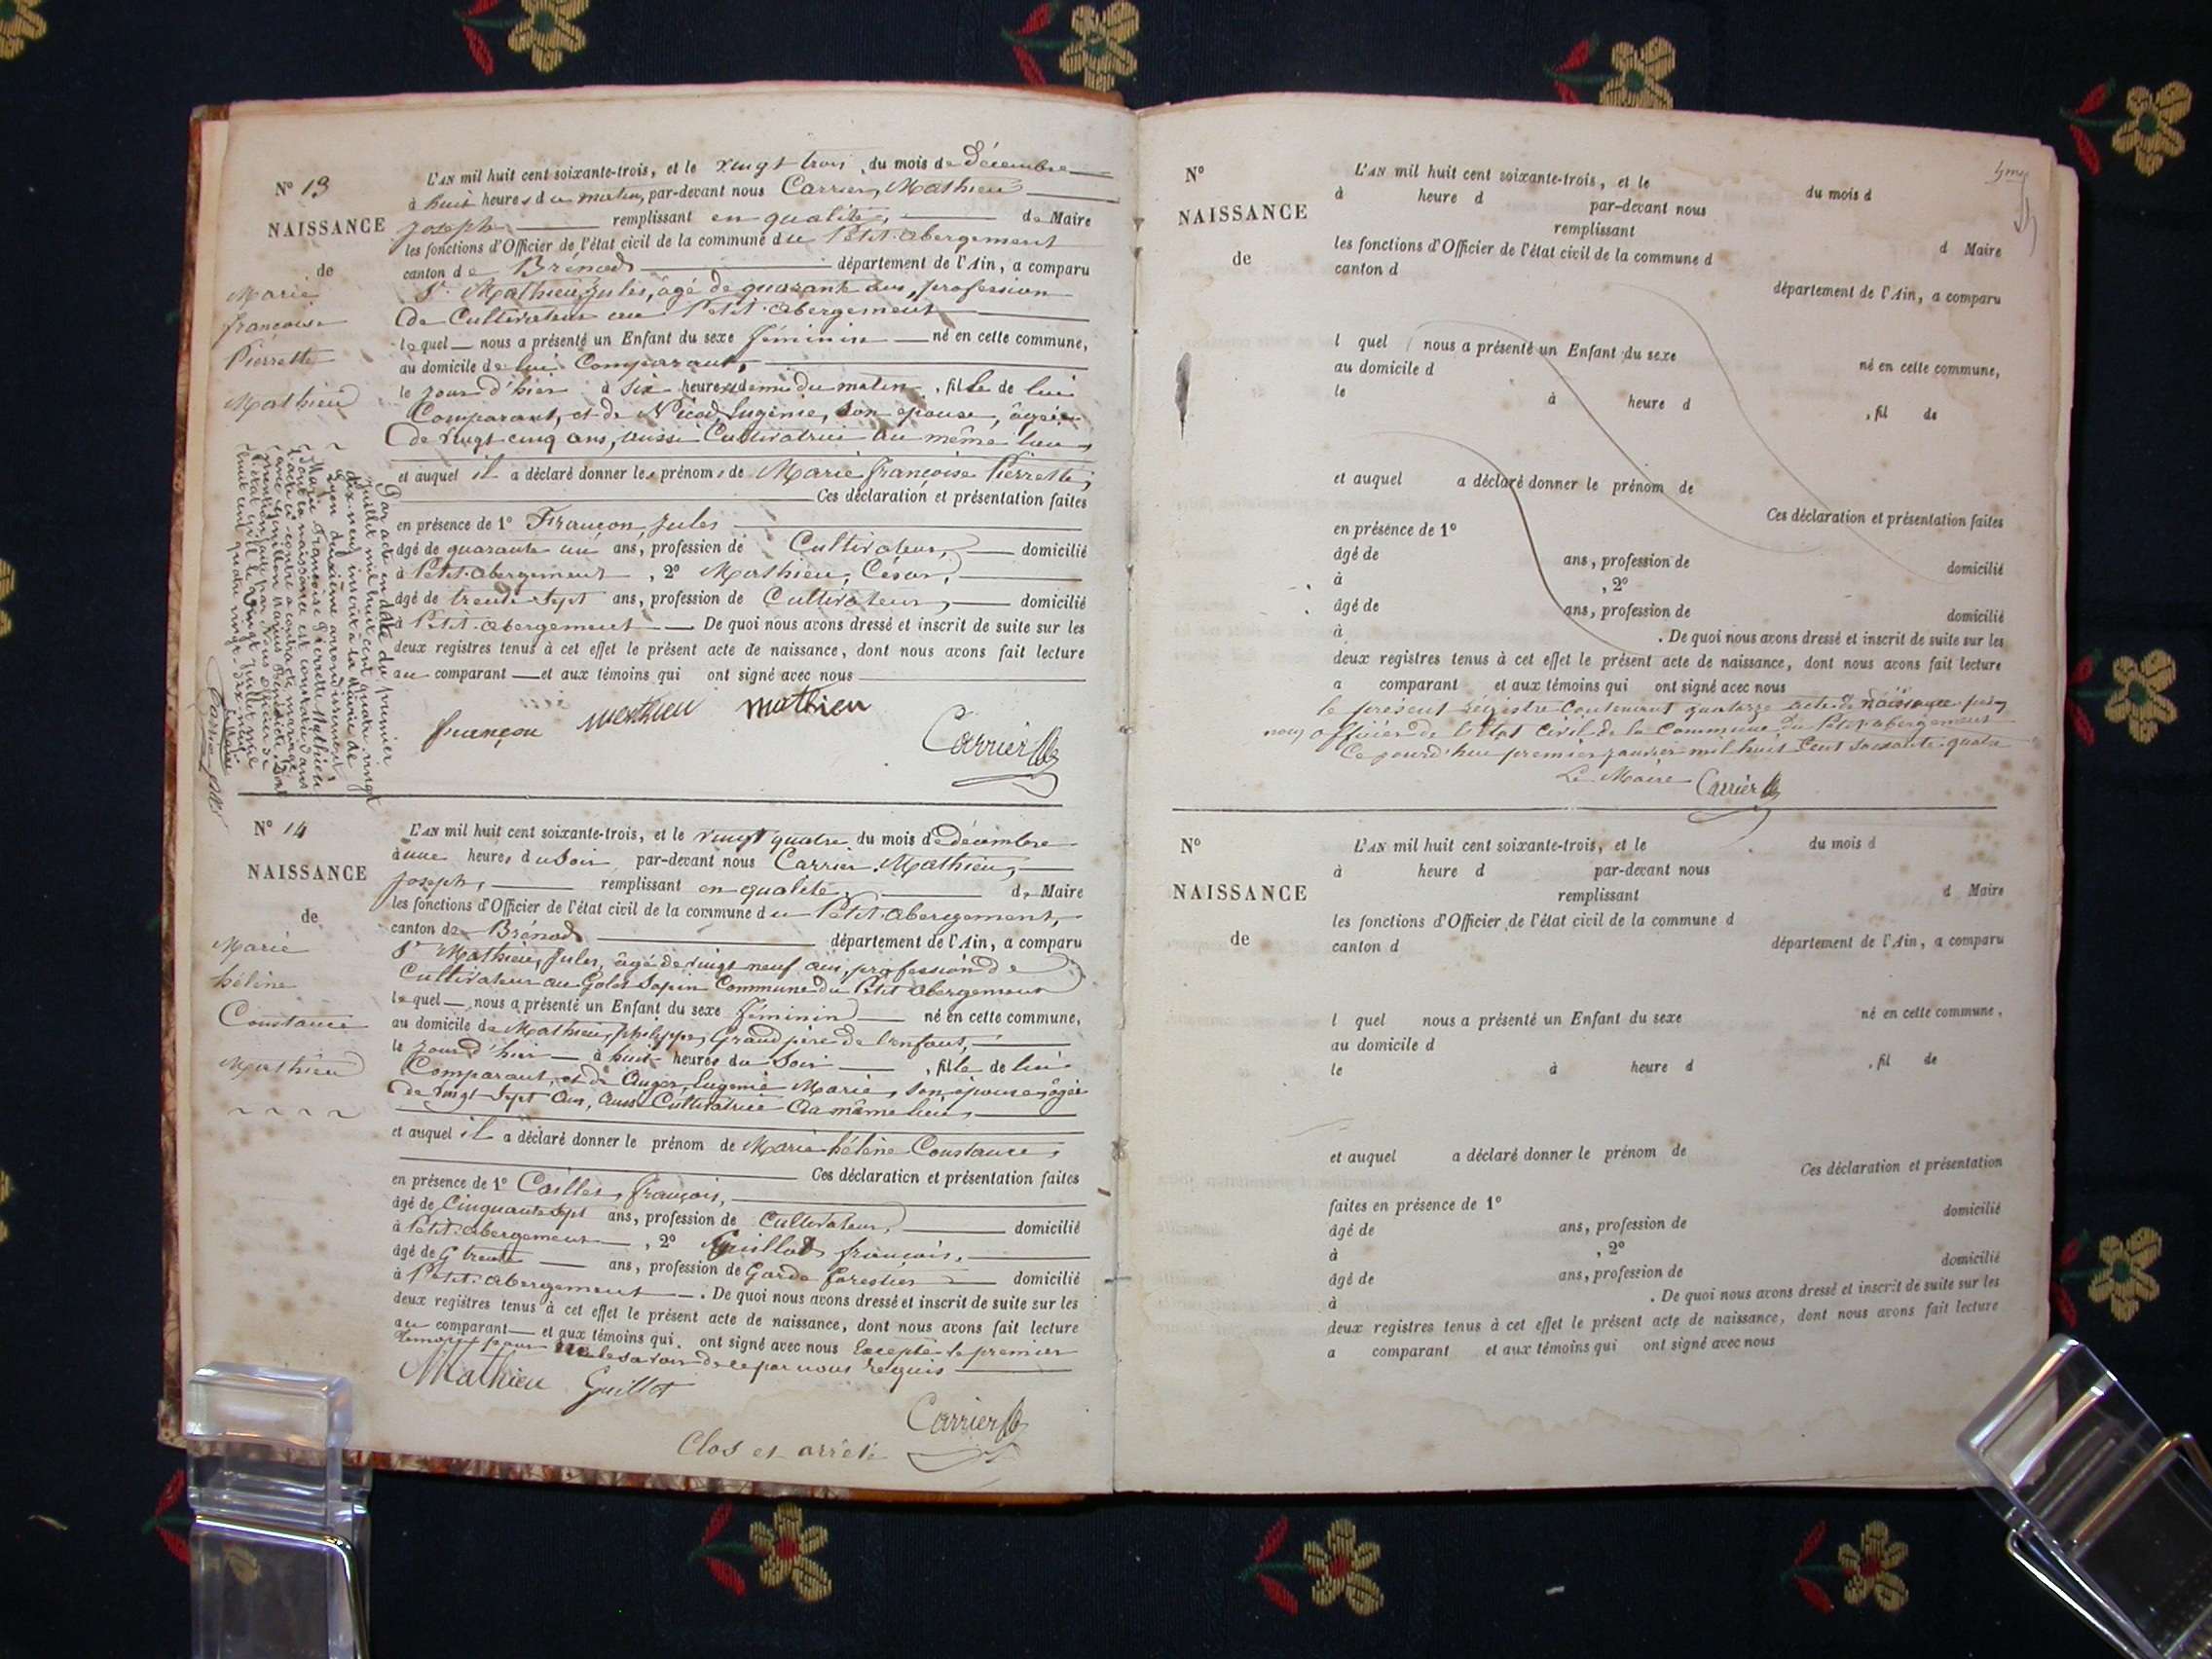 N° 13
NAISSANCE
de
Marie
françoise
Pierrette
Mathieu
L'AN mil huit cent soixante-trois, et le vingt trois du mois de Décembre
à huit heures du matin, par-devant nous Carrier, Mathieu
Joseph, remplissant en qualité, de Maire
les fonctions d'Officier de l'état civil de la commune du Petit-abergement
canton de Brénod département de l'Ain, a comparu
Sr Mathieu Jules, âgé de quarante ans, profession
de Cultivateur au Petit-abergement
lequel nous a présenté un Enfant du sexe féminin né en cette commune,
au domicile de lui Comparant,
le jour d'hier à six heures et demie du matin, fille de lui
Comparant, et de Nicod, Eugénie, son épouse, âgée
de vingt cinq ans, aussi Cultivatrice au même lieu,
et auquel il a déclaré donner les prénoms de Marie françoise Pierrette,
Ces déclaration et présentation faites
en présence de 1° Françon, Jules
âgé de quarante un ans, profession de Cultivateur, domicilié
à Petit-abergement, 2° Mathieu, César,
âgé de trente-sept ans, profession de Cultivateur, domicilié
à Petit-abergement. De quoi nous avons dressé et inscrit de suite sur les
deux registres tenus à cet effet le présent acte de naissance, dont nous avons fait lecture
au comparant et aux témoins qui ont signé avec nous
françon mathieu mathieu
Carrier
Par acte en date du premier
juillet mil huit cent quatre vingt
dix-neuf inscrit à la Mairie de
Lyon deuxième arrondissement
Marie Françoise Pierrette Mathieu
dont la naissance est constatée dans
l'acte ci-contre a contracté mariage
avec
mention faite par Nous officier de
l'état civil le vingt juillet mil
huit cent quatre vingt-dix neuf
Le Maire
Carrier
N° 14
NAISSANCE
de
Marie
hélène
Constance
Mathieu
L'AN mil huit cent soixante-trois, et le vingt quatre du mois de Décembre
à une heures du soir par-devant nous Carrier, Mathieu,
Joseph, remplissant en qualité, de Maire
les fonctions d'Officier de l'état civil de la commune du Petit-abergement,
canton de Brénod département de l'Ain, a comparu
Sr Mathieu, Jules, âgé de vingt neuf ans, profession de
Cultivateur au Golet Sapin Commune du Petit abergement
lequel nous a présenté un Enfant du sexe féminin né en cette commune,
au domicile de Mathieu, philippe, Grand père de l'enfant,
le jour d'hier à huit heures du soir, fille de lui
Comparant, et de Auger, Eugenie Marie, son épouse, âgée
de vingt-sept ans, aussi Cultivatrice au même lieu,
et auquel il a déclaré donner le prénom de Marie hélène Constance,
Ces déclaration et présentation faites
en présence de 1° Caillet, françois,
âgé de Cinquante sept ans, profession de Cultivateur, domicilié
à Petit-abergement, 2° Guillot françois,
âgé de trente ans, profession de Garde forestier domicilié
à Petit-abergement. De quoi nous avons dressé et inscrit de suite sur les
deux registres tenus à cet effet le présent acte de naissance, dont nous avons fait lecture
au comparant et aux témoins qui ont signé avec nous Excepté le premier
témoin pour ne le savoir de ce par nous requis
Mathieu Guillot
Carrier
Clos et arrêté
N°
NAISSANCE
de
L'AN mil huit cent soixante-trois, et le du mois d
à heure d par-devant nous
remplissant d Maire
les fonctions d'Officier de l'état civil de la commune d
canton d département de l'Ain, a comparu
l quel nous a présenté un Enfant du sexe né en cette commune,
au domicile d
le à heure d , fil de
et auquel a déclaré donner le prénom de
Ces déclaration et présentation faites
en présence de 1°
âgé de ans, profession de domicilié
à , 2°
âgé de ans, profession de domicilié
à . De quoi nous avons dressé et inscrit de suite sur les
deux registres tenus à cet effet le présent acte de naissance, dont nous avons fait lecture
a comparant et aux témoins qui ont signé avec nous
le présent régistre Contenant quatorze actes de naissance par
nous officier de l'état civil de la Commune du Petit-abergement
Ce jourd'hui premier janvier mil huit Cent soixante-quatre
Le Maire Carrier
N°
NAISSANCE
de
L'AN mil huit cent soixante-trois, et le du mois d
à heure d par-devant nous
remplissant d Maire
les fonctions d'Officier de l'état civil de la commune d
canton d département de l'Ain, a comparu
l quel nous a présenté un Enfant du sexe né en cette commune,
au domicile d
le à heure d , fil de
et auquel a déclaré donner le prénom de
Ces déclaration et présentation
faites en présence de 1°
âgé de ans, profession de domicilié
à , 2°
âgé de ans, profession de domicilié
à . De quoi nous avons dressé et inscrit de suite sur les
deux registres tenus à cet effet le présent acte de naissance, dont nous avons fait lecture
a comparant et aux témoins qui ont signé avec nous